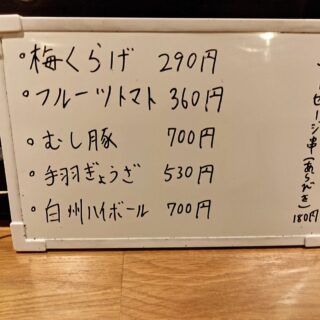 ・梅くらげ 290円
・フルーツトマト 360円
・むし豚 700円
・手羽ぎょうざ 530円
・白州ハイボール 700円
セージ串(あらびき)180円